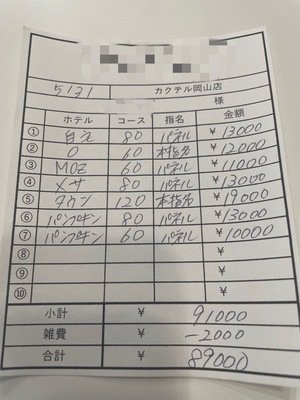 5131 カクテル岡山店
様
ホテル コース 指名 金額
① 白元 80 パネル ¥13000
② O 60 本指名 ¥12000
③ MOZ 60 パネル ¥11000
④ メサ 80 パネル ¥13000
⑤ タウン 120 本指名 ¥19000
⑥ パンプキン 80 パネル ¥13000
⑦ パンプキン 60 パネル ¥10000
⑧ ¥
⑨ ¥
⑩ ¥
小計 ¥ 91000
雑費 ¥ -2000
合計 ¥ 89000